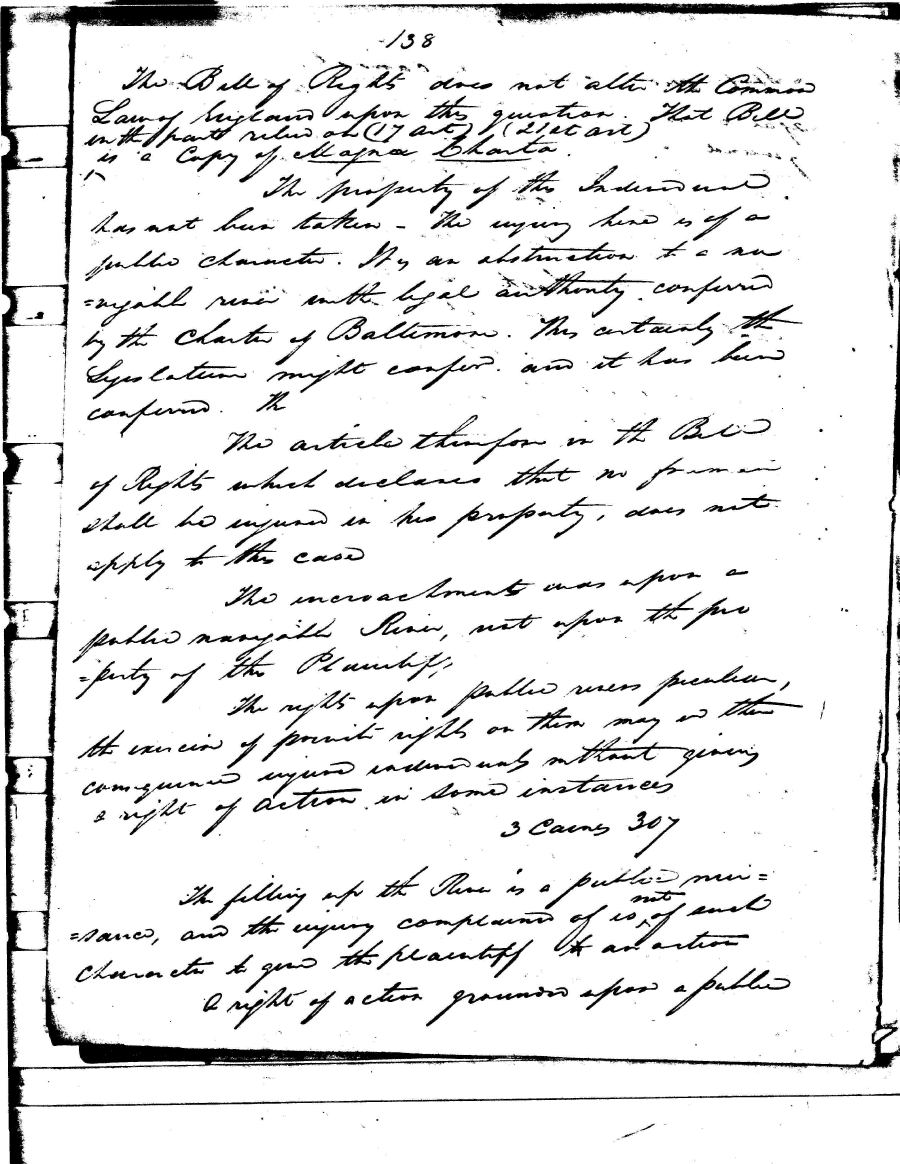 138
The Bill of Rights does not alter the Common
Law of England upon this question. That Bill
in the parts relied on (17 art) (21st art)
is a Copy of Magna Charta.
The property of this Individual
has not been taken - The injury here is of a
public character. It is an obstruction to a na
=vigable river with legal authority conferred
by the Charter of Baltimore. This certainly the
Legislature might confer. and it has been
conferred. Th
The article therefore in the Bill
of Rights which declares that no freeman
shall be injured in his property, does not
apply to this case
The incroachments was upon a
public navigable River, not upon the pro
=perty of the Plaintiff,
The rights upon public rivers peculiar,
the exercise of private rights on them may in their
consequences injure individuals without giving
a right of action in some instances
3 Caines 307
The filling up the River is a public nui=
=sance, and the injury complained of is not of such
character to give the plaintiff an action
A right of action grounded upon a public